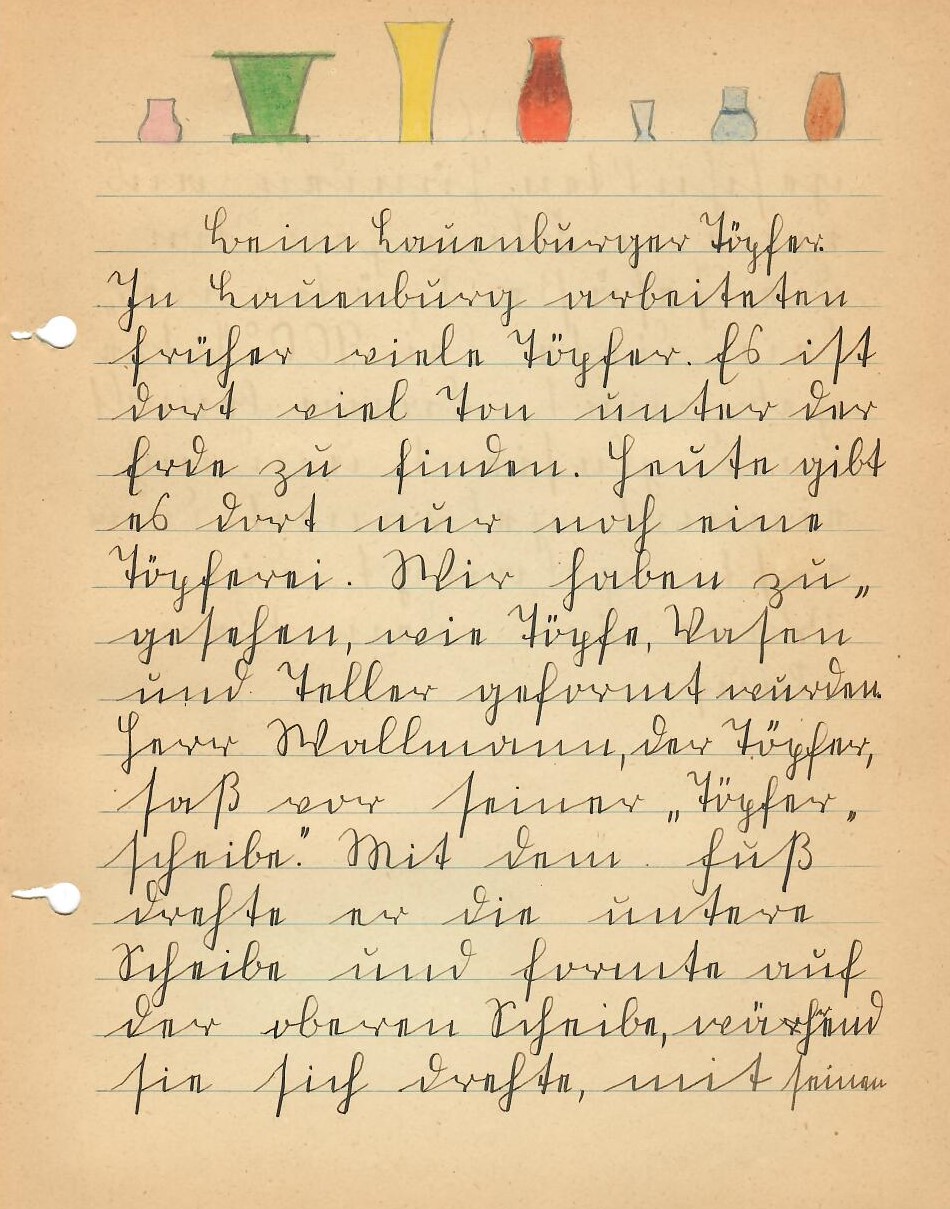 Beim Lauenburger Töpfer.
In Lauenburg arbeiteten
früher viele Töpfer. Es ist
dort viel Ton unter der
Erde zu finden. Heute gibt
es dort nur noch eine
Töpferei. Wir haben zu„
gesehen, wie Töpfe, Vasen
und Teller geformt wurden.
Herr Wallmann, der Töpfer,
saß vor seiner „Töpfer„
scheibe." Mit dem Fuß
drehte er die untere
Scheibe und formte auf
der oberen Scheibe, während
sie sich drehte, mit seinen